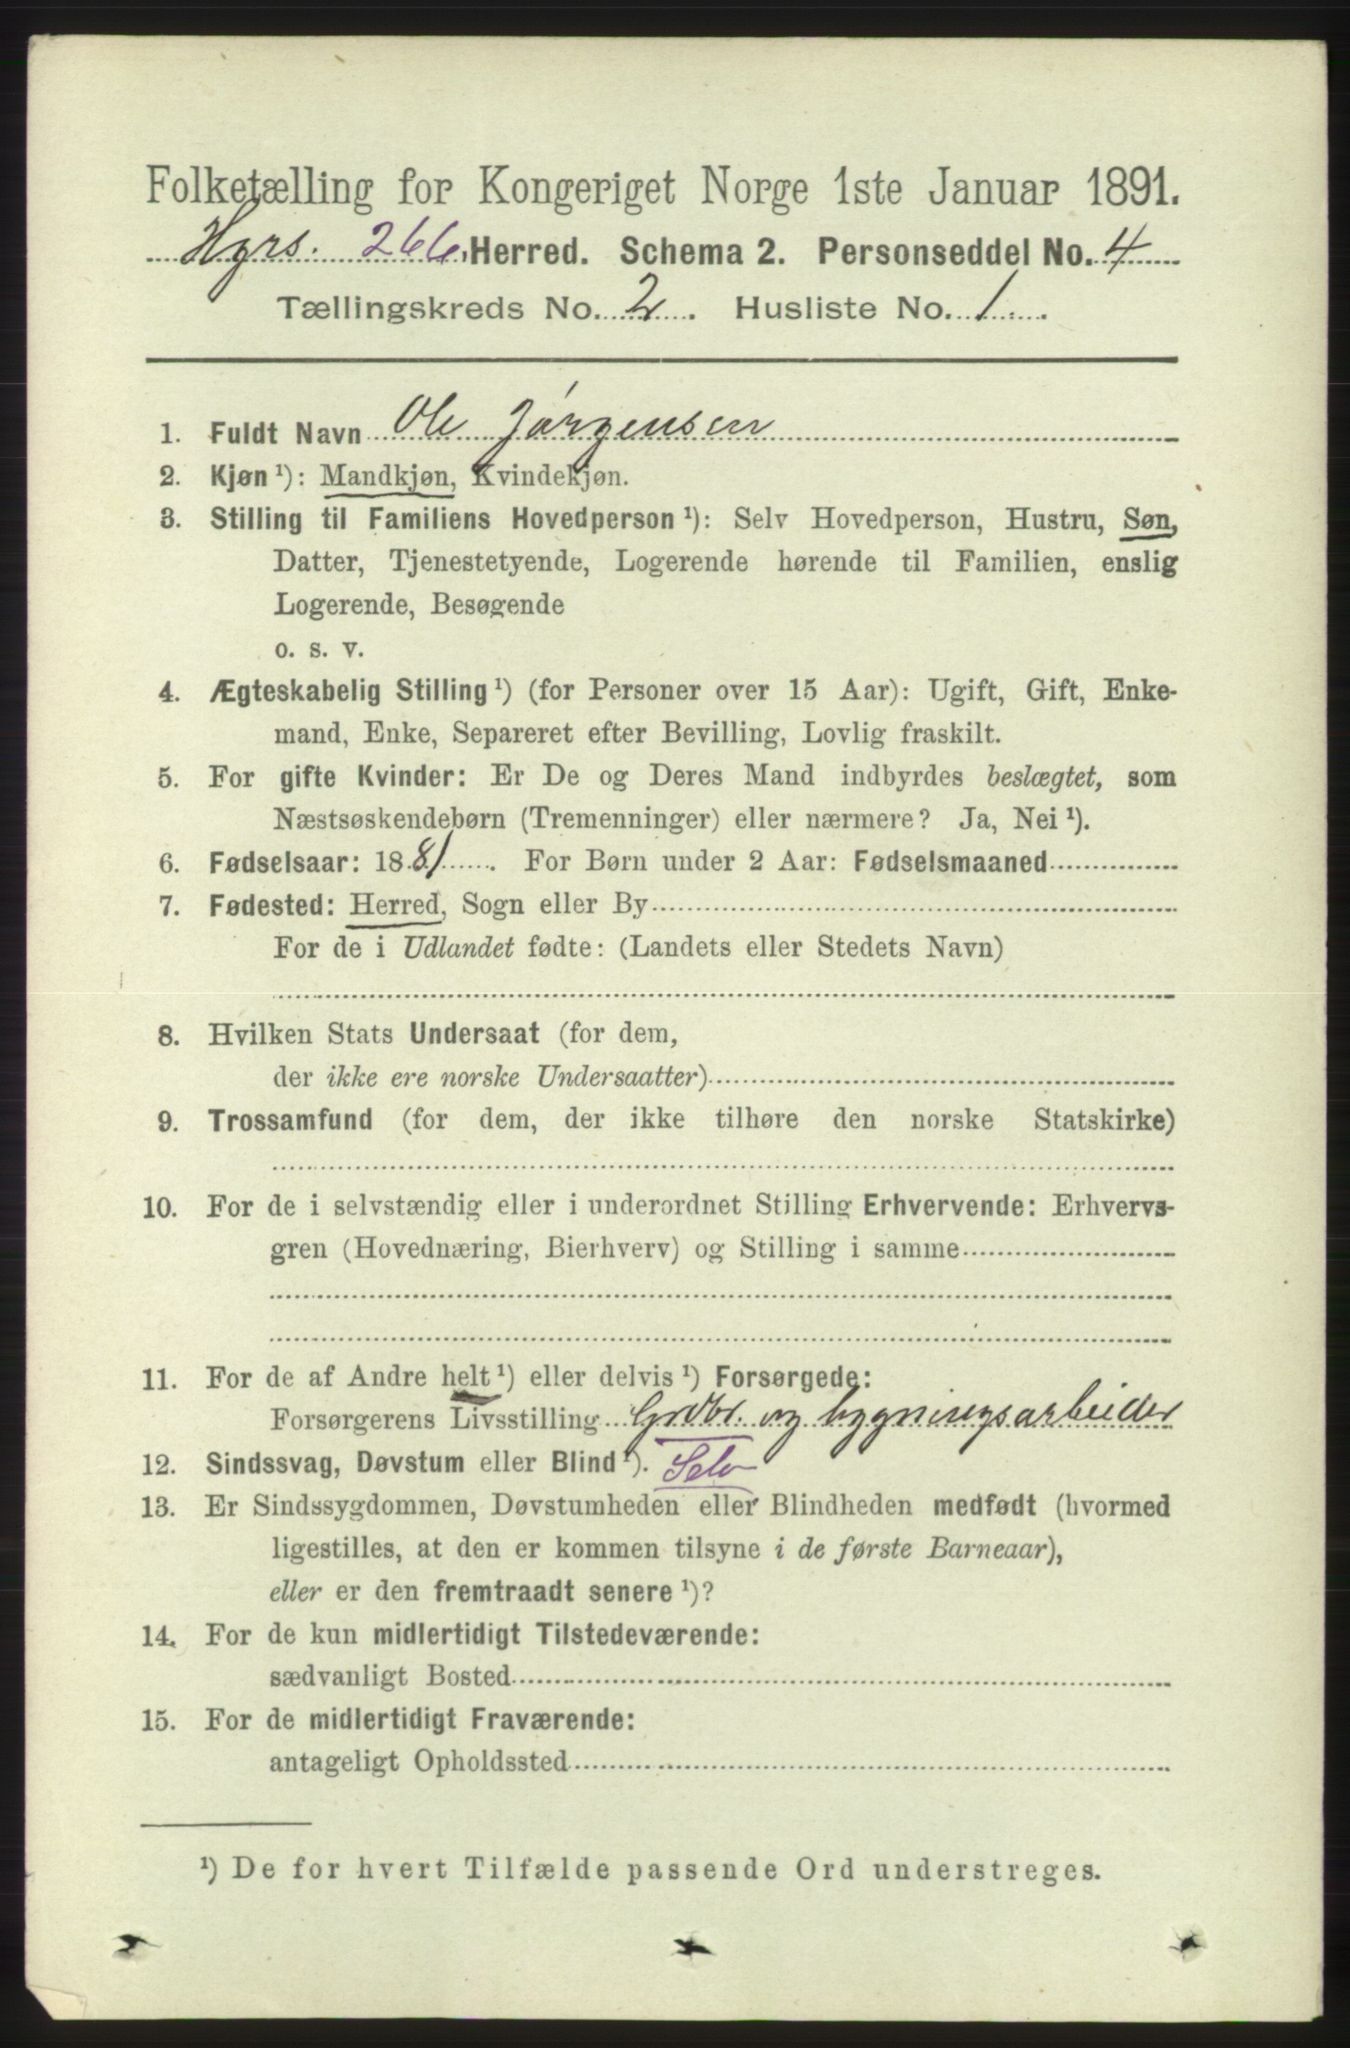 Folketælling for Kongeriget Norge 1ste Januar 1891.
Hgrs. 266. Herred. Schema 2. Personseddel No. 4
Tællingskreds No. 2. Husliste No. 1.
1. Fuldt Navn Ole Jørgensen
2. Kjøn¹): Mandkjøn, Kvindekjøn.
3. Stilling til Familiens Hovedperson¹): Selv Hovedperson, Hustru, Søn,
Datter, Tjenestetyende, Logerende hørende til Familien, enslig
Logerende, Besøgende
o. s. v.
4. Ægteskabelig Stilling¹) (for Personer over 15 Aar): Ugift, Gift, Enke-
mand, Enke, Separeret efter Bevilling, Lovlig fraskilt.
5. For gifte Kvinder: Er De og Deres Mand indbyrdes beslægtet, som
Næstsøskendebørn (Tremenninger) eller nærmere? Ja, Nei¹).
6. Fødselsaar: 1881. For Børn under 2 Aar: Fødselsmaaned
7. Fødested: Herred, Sogn eller By
For de i Udlandet fødte: (Landets eller Stedets Navn)
8. Hvilken Stats Undersaat (for dem,
der ikke ere norske Undersaatter)
9. Trossamfund (for dem, der ikke tilhøre den norske Statskirke)
10. For de i selvstændig eller i underordnet Stilling Erhvervende: Erhvervs-
gren (Hovednæring, Bierhverv) og Stilling i samme
11. For de af Andre helt¹) eller delvis¹) Forsørgede:
Forsørgerens Livsstilling Grdbr. og bygningsarbeider
12. Sindssvag, Døvstum eller Blind¹). Selv
13. Er Sindssygdommen, Døvstumheden eller Blindheden medfødt (hvormed
ligestilles, at den er kommen tilsyne i de første Barneaar),
eller er den fremtraadt senere¹)?
14. For de kun midlertidigt Tilstedeværende:
sædvanligt Bosted
15. For de midlertidigt Fraværende:
antageligt Opholdssted
¹) De for hvert Tilfælde passende Ord understreges.